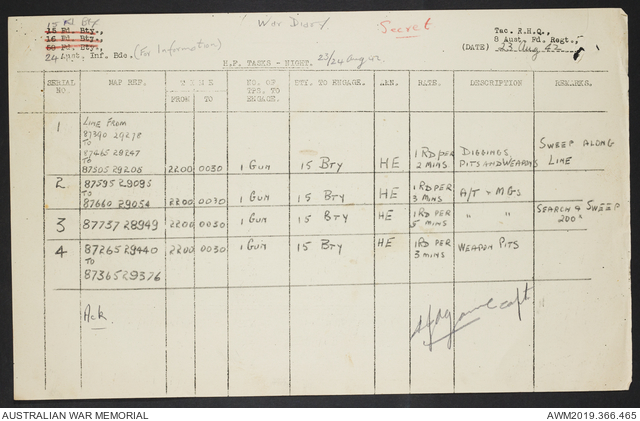 15 Fd Bty
15 Fd. Bty.
16 Fd. Bty.
60 Fd. Bty.
24 Aust. Inf. Bde. (For Information)
War Diary
Secret
Tac. R.H.Q.,
8 Aust. Fd. Regt.,
(DATE) 23 Aug 42
H.F. TASKS - NIGHT. 23/24 Aug 42
SERIAL NO. MAP REF. TIME FROM TO NO. OF TPS. TO ENGAGE. BTY. TO ENGAGE. AMN. RATE. DESCRIPTION REMARKS.
1 LINE FROM 87390 29278 TO 87465 29247 TO 87505 29208 2200 0030 1 GUN 15 BTY HE 1 RD PER 2 MINS DIGGINGS PITS AND WEAPONS SWEEP ALONG LINE
2 87595 29095 TO 87660 29054 2200 0030 1 GUN 15 BTY HE 1 RD PER 3 MINS A/T + MGs
3 87737 28949 2200 0030 1 GUN 15 BTY HE 1 RD PER 5 MINS " " SEARCH & SWEEP 200x
4 87265 29440 TO 87365 29376 2200 0030 1 GUN 15 BTY HE 1 RD PER 3 MINS WEAPON PITS
Ack.
Capt
AUSTRALIAN WAR MEMORIAL AWM2019.366.465